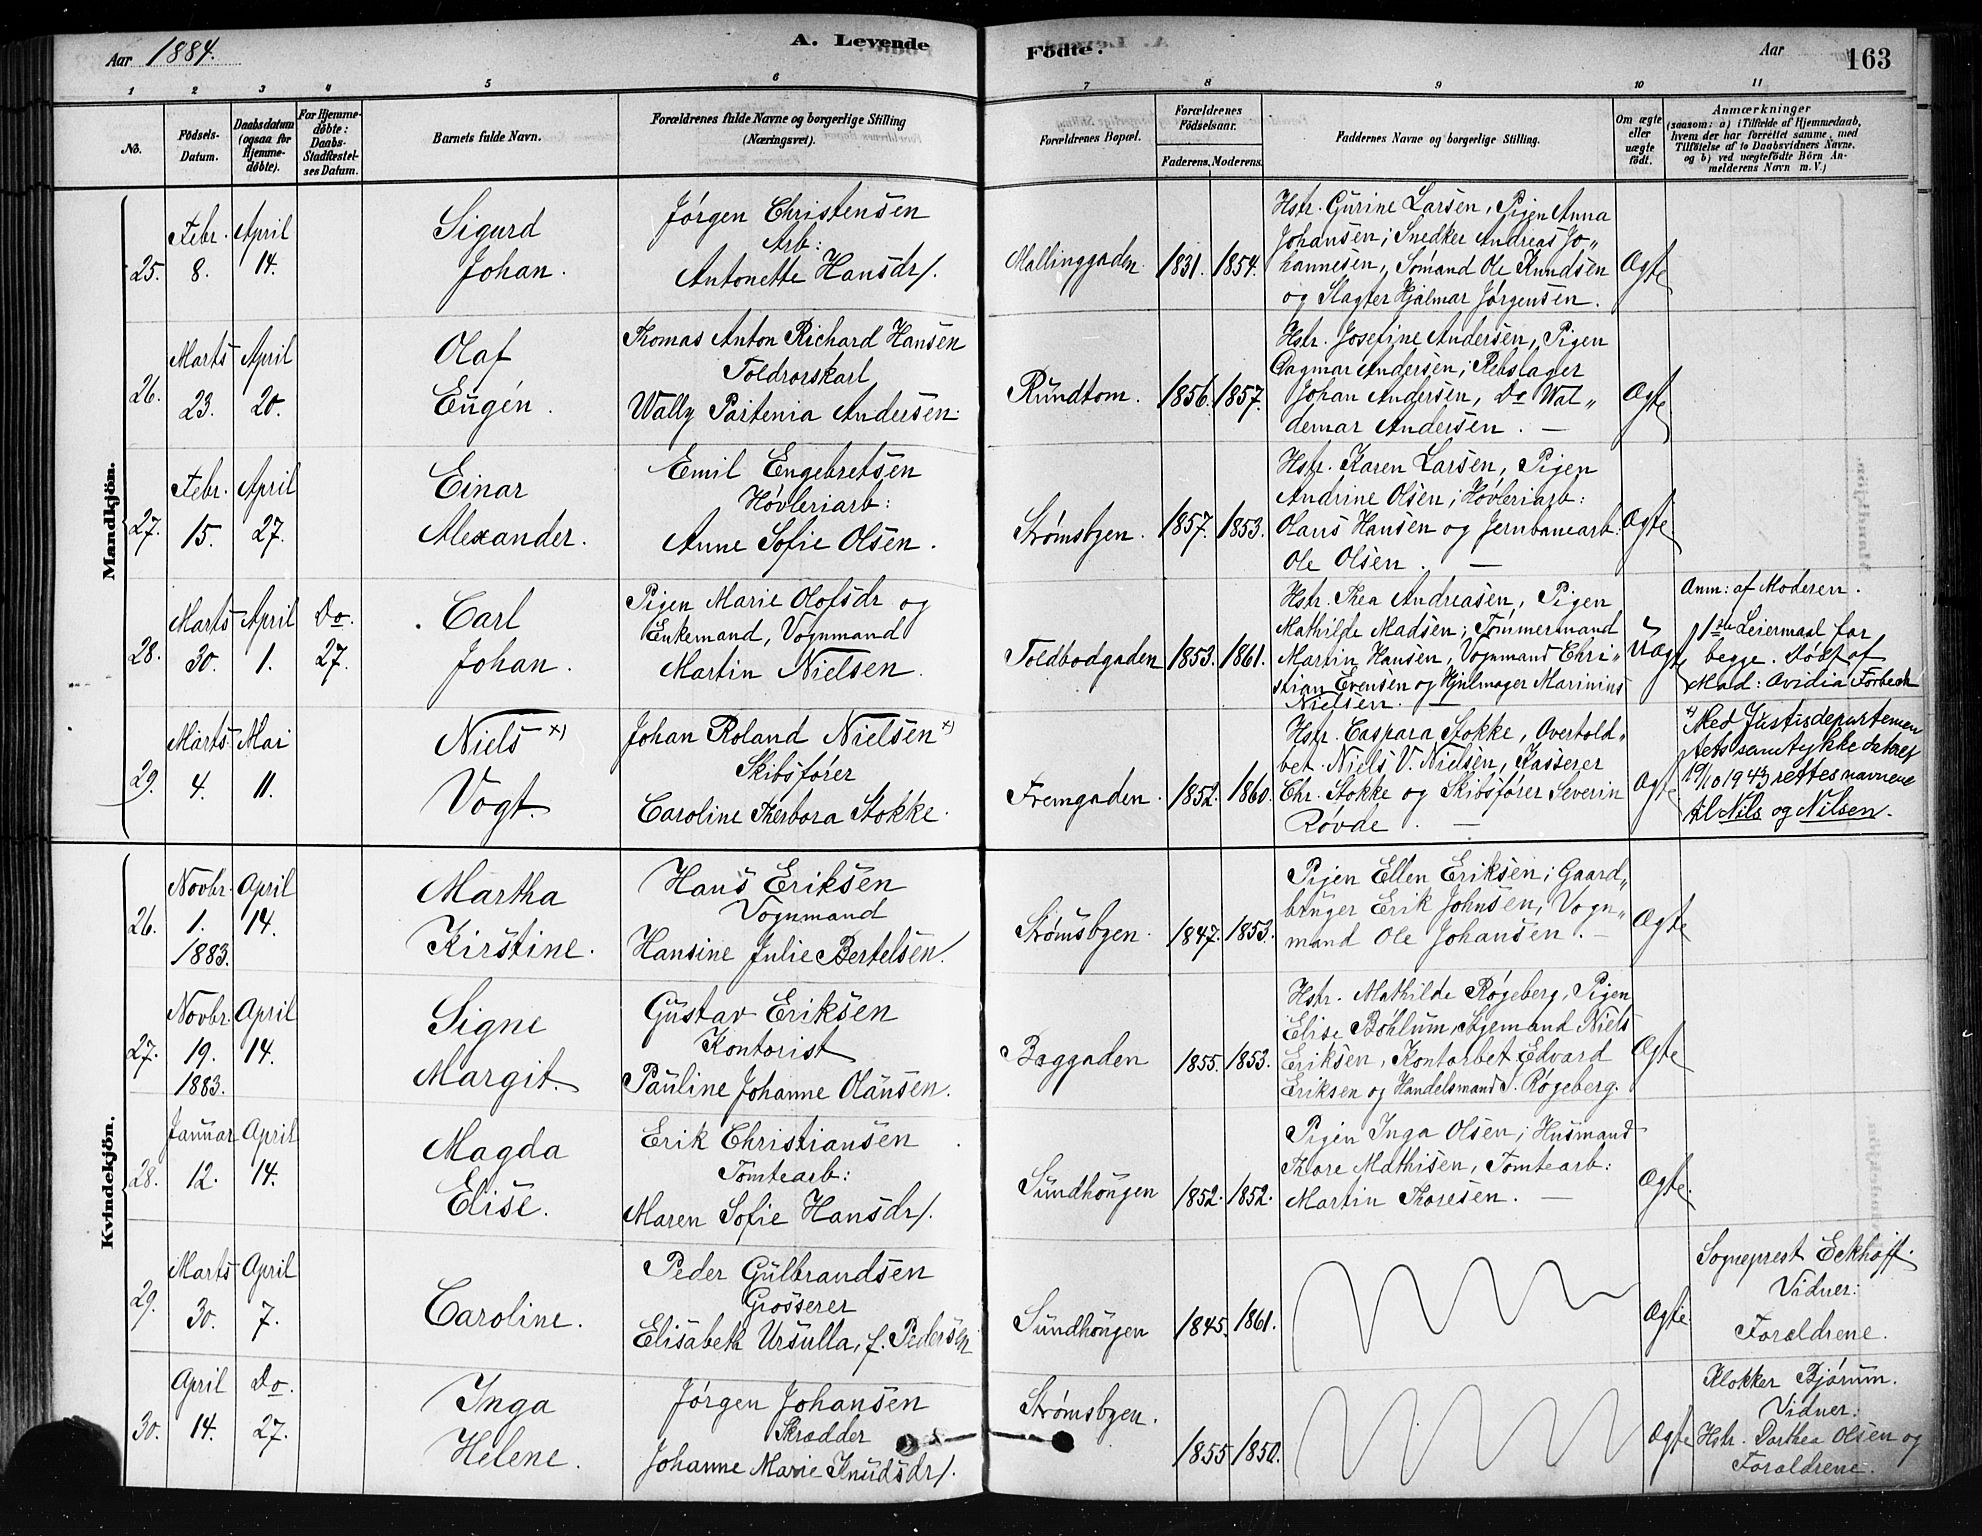 Aar 1884.
A. Levende Födte.
Aar 163
1 2 3 4 5 6 7 8 9 10 11
No.
Födsels-Datum.
Daabsdatum (ogsaa for Hjemme-döbte).
For Hjemme-döbte: Daabs-Stadfæstel-ses Datum.
Barnets fulde Navn.
Forældrenes fulde Navne og borgerlige Stilling (Næringsvei).
Forældrenes Bopæl.
Forældrenes Födselsaar.
Faderens. Moderens.
Faddernes Navne og borgerlige Stilling.
Om ægte eller uægte födt.
Anmærkninger
(saasom: a) i Tilfælde af Hjemmedaab, hvem der har forrettet samme, med Tilföielse af to Daabsvidners Navne. og b) ved uægtefödte Börn An-melderens Navn m. V.)
Mandkjön.
25.
Febr. 8.
April 14.
Sigurd
Johan.
Jørgen Christensen
Arb:
Antonette Hansdr/.
Mallinggaden. 1831. 1854.
Hstr. Gurine Larsen, Pigen Anna
Johansen; Snedker Andreas Jo„
hannesen, Sømand Ole Knudsen
og Slagter Hjalmar Jørgensen.
Ægte
26.
Marts 23.
April 20.
Olaf
Eugén.
Thomas Anton Richard Hansen
Toldrorskarl
Wally Partenia Andersen.
Rundtom. 1856. 1857.
Hstr. Josefine Andersen, Pigen
Dagmar Andersen; Rebslager
Johan Andersen, Do Wal„
demar Andersen. —
Ægte
27.
Febr. 15.
April 27.
Einar
Alexander.
Emil Engebretsen
Høvleriarb:
Anne Sofie Olsen.
Strømsbyen. 1857. 1853.
Hstr. Karen Larsen, Pigen
Andrine Olsen; Høvleriarb:
Olaus Hansen og Jernbanearb:
Ole Olsen. —
Ægte
28.
Marts 30.
April 1.
Do. 27.
Carl
Johan.
Pigen Marie Olofsdr og
Enkemand, Vognmand
Martin Nielsen.
Toldbodgaden 1853. 1861.
Hstr. Thea Andreasen, Pigen
Mathilde Madsen; Tømmermand
Martin Hansen, Vognmand Chri„
stian Evensen og Hjulmager Marinius
Nielsen. —
Uægte
Anm: af Moderen.
1ste Leiermaal for
begge. Døbt af
Mad: Ovidia Forbech
29.
Marts 4.
Mai 11.
Niels x)
Vogt.
Johan Roland Nielsen x)
Skibsfører
Caroline Therbora Stokke.
Fremgaden. 1852. 1860.
Hstr. Caspara Stokke, Overtold„
bet. Niels V. Nielsen, Kasserer
Chr. Stokke og Skibsfører Severin
Røvde. —
Ægte
x) Med Justisdepartemen
tets samtykke datert
19/10 1943 rettes navnene
til Nils og Nilsen.
Kvindekjön.
26.
Novbr. 1. 1883.
April 14.
Martha
Kirstine.
Hans Eriksen
Vognmand
Hansine Julie Bertelsen/.
Strømsbyen. 1847. 1853.
Pigen Ellen Eriksen; Gaard„
bruger Erik Johnsen, Vogn„
mand Ole Johansen. —
Ægte
27.
Novbr. 19. 1883.
April 14.
Signe
Margit.
Gustav Eriksen
Kontorist
Pauline Johanne Olausen.
Baggaden 1855. 1853.
Hstr. Mathilde Røgeberg, Pigen
Elise Bøhlum, Styrmand Niels
Eriksen, Kontorbet. Edvard
Eriksen og Handelsmand J. Røgeberg.
Ægte
28.
Januar 12.
April 14.
Magda
Elise.
Erik Christiansen
Tomtearb:
Maren Sofie Hansdr/.
Sundhougen 1852. 1852.
Pigen Inga Olsen; Husmand
Thore Mathisen, Tomtearb:
Martin Thoresen. —
Ægte.
29.
Marts 30.
April 7.
Caroline.
Peder Gulbrandsen
Grosserer
Elisabeth Ursulla, f. Pedersen
Sundhougen 1845. 1861.
Ægte.
Sogneprest Eckhoff.
Vidner:
Forældrene.
30.
April 14.
Do. 27.
Inga
Helene.
Jørgen Johansen
Skrædder
Johanne Marie Knudsdr/.
Strømsbyen. 1855 1850.
Ægte
Klokker Bjørum.
Vidner:
Hstr. Dorthea Olsen og
Forældrene.